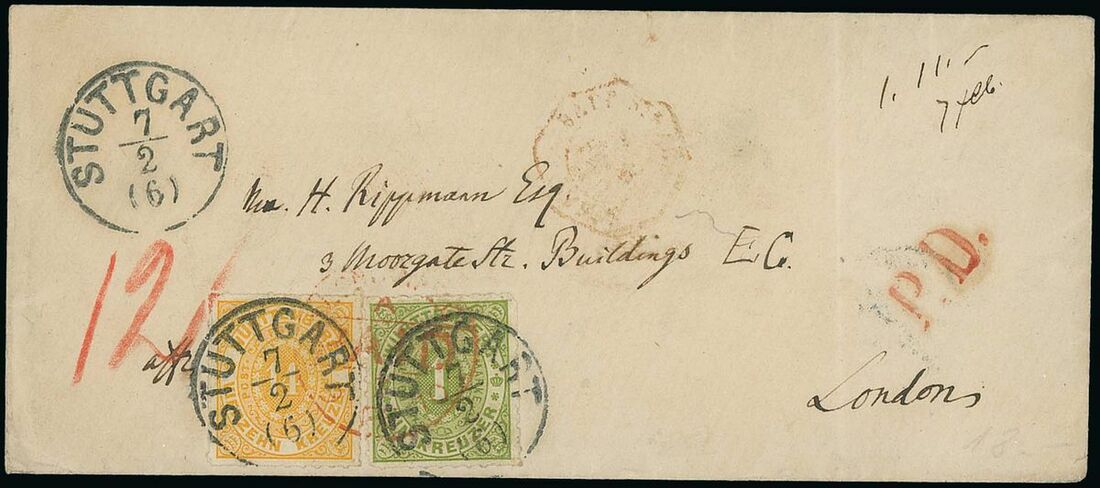 STUTTGART
7
2
(6)
1. 11.
7 feb.
H. Rippmann Esq.
3 Moorgate Str. Buildings E.C.
P.D.
12
London
STUTTGART
7
2
(6)
ZEHN KREUZER
STUTTGART
7
2
(6)
1
KREUZER